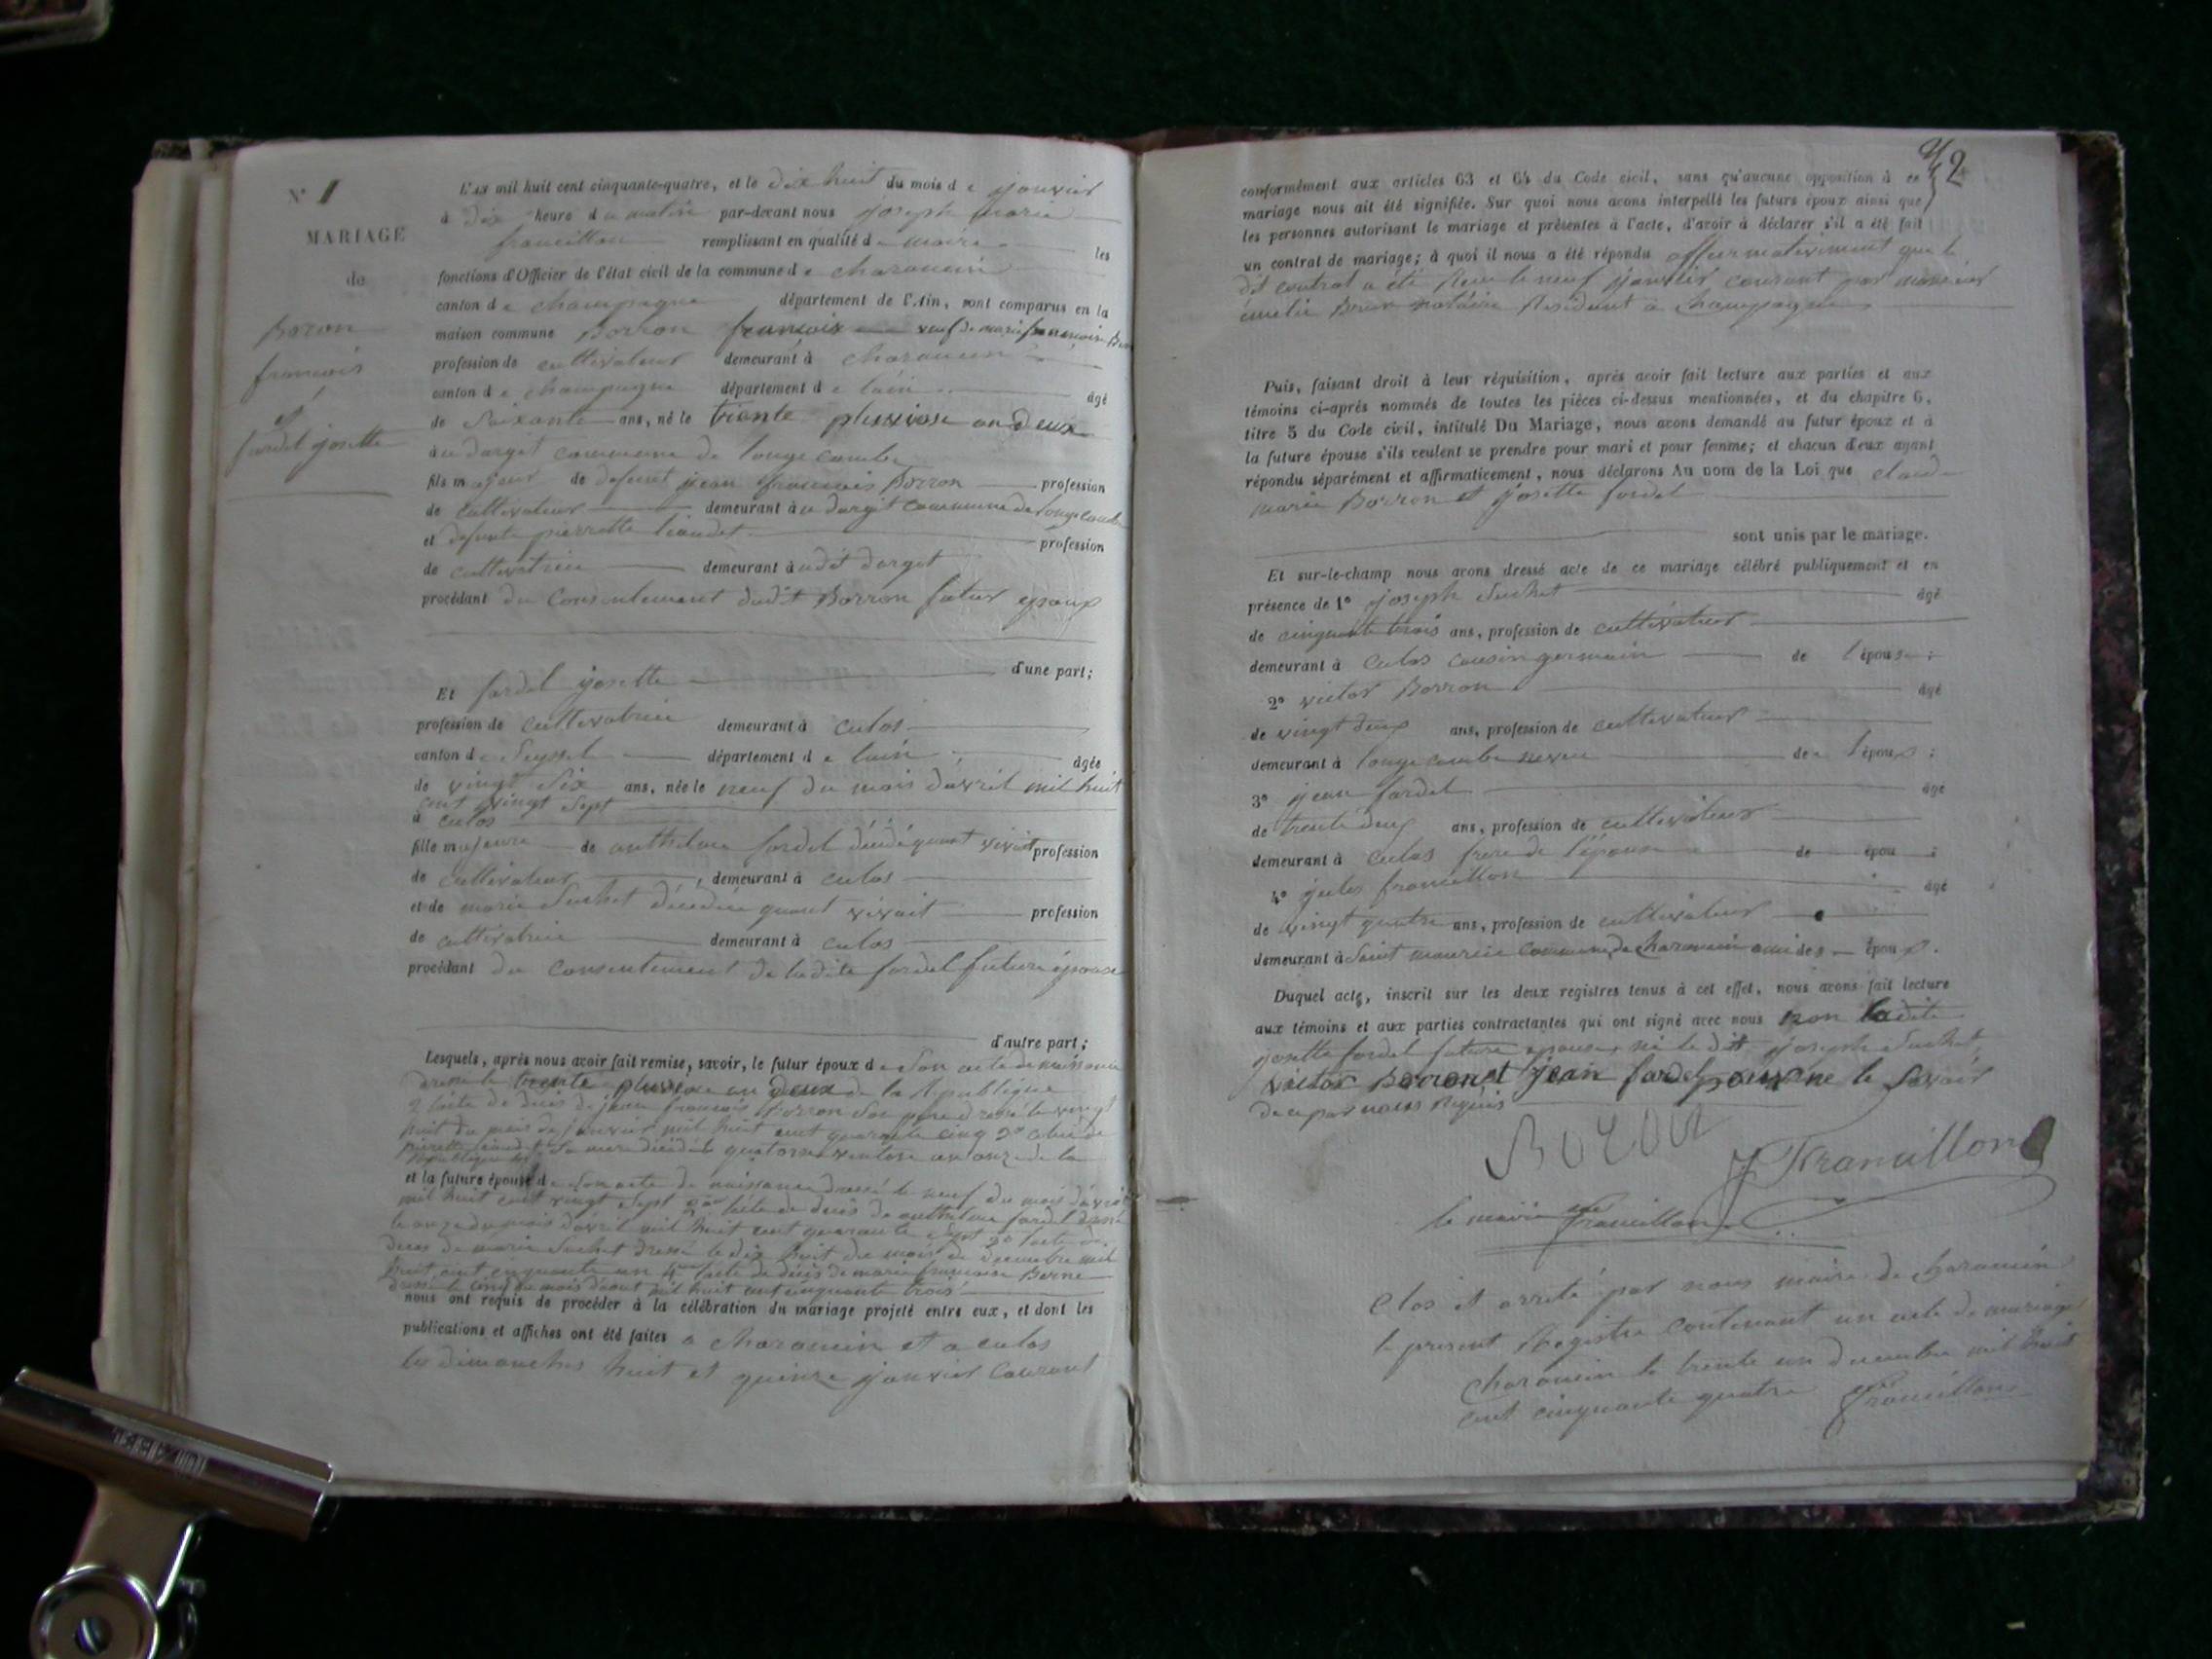 N° 1
MARIAGE
de
Boron
francois
et
fardel josette
L'AN mil huit cent cinquante-quatre, et le dix huit du mois de janvier
à dix heure du matin par-devant nous joseph marie
francillon remplissant en qualité de maire les
fonctions d'Officier de l'état civil de la commune de charancin
canton de champagne département de l'Ain, sont comparus en la
maison commune Borron francois veuf de marie francoise Bern
profession de cultivateur demeurant à charancin
canton de champagne département de lain âgé
de Soixante ans, né le trente pluviose an deux
à au dargit commune de longecombe
fils majeur de defunt jean francois Borron profession
de cultivateur demeurant à au dargit commune de longecombe
et defunte pierrette liaudet profession
de cultivatrice demeurant à udit dargit
procédant du Consentement dudit Borron futur epoux
d'une part;
Et fardel josette
profession de cultivatrice demeurant à culos
canton de Seyssel département de lain âgée
de vingt Six ans, née le neuf du mois d'avril mil huit
cent vingt Sept
à culos
fille majeure de anthelme fardel décédé quant vivait profession
de cultivateur, demeurant à culos
et de marie Suchet décédée quant vivait profession
de cultivatrice demeurant à culos
procédant du consentement de ladite fardel future épouse
d'autre part;
Lesquels, après nous avoir fait remise, savoir, le futur époux de Son acte de naissance
dressé le trente pluviose an deux de la République
2 lacte de décès de jean francois Borron Son père dressé le vingt
huit du mois de janvier mil huit cent quarante cinq 3° celui de
pierrette liaudet Sa mere décédé le quatorze ventose an onze de la
République
et la future épouse de Son acte de naissance dressé le neuf du mois d'avril
mil huit cent vingt Sept 2° lacte de décès de anthelme fardel dressé
le onze du mois d'avril mil huit cent quarante Sept 3° lacte de
décès de marie Suchet dressé le dix huit du mois de decembre mil
huit cent cinquante un 4° lacte de décès de marie francoise Berne
dressé le cinq du mois daout mil huit cent cinquante trois
nous ont requis de procéder à la célébration du mariage projeté entre eux, et dont les
publications et affiches ont été faites a charancin et a culos
les dimanches huit et quinze janvier Courant
42
conformément aux articles 63 et 64 du Code civil, sans qu'aucune opposition à ce
mariage nous ait été signifiée. Sur quoi nous avons interpellé les futurs époux ainsi que
les personnes autorisant le mariage et présentes à l'acte, d'avoir à déclarer s'il a été fait
un contrat de mariage; à quoi il nous a été répondu affirmativement que le
dit contrat a été Recu le neuf janvier courant par monsieur
emélie Brun notaire Résident a Champagne
Puis, faisant droit à leur réquisition, après avoir fait lecture aux parties et aux
témoins ci-après nommés de toutes les pièces ci-dessus mentionnées, et du chapitre 6,
titre 5 du Code civil, intitulé Du Mariage, nous avons demandé au futur époux et à
la future épouse s'ils veulent se prendre pour mari et pour femme; et chacun d'eux ayant
répondu séparément et affirmativement, nous déclarons Au nom de la Loi que claude
marie Borron et josette fardel
sont unis par le mariage.
Et sur-le-champ nous avons dressé acte de ce mariage célébré publiquement et en
présence de 1° joseph Suchet âgé
de cinquante trois ans, profession de cultivateur
demeurant à culos cousin germain de l'épouse;
2° victor Borron âgé
de vingt deux ans, profession de cultivateur
demeurant à longecombe neveu de l'époux;
3° jean fardel âgé
de trente deux ans, profession de cultivateur
demeurant à culos frere de l'épouse de épou;
4° jules francillon âgé
de vingt quatre ans, profession de cultivateur
demeurant à Saint maurice commune de charancin ami des époux.
Duquel acte, inscrit sur les deux registres tenus à cet effet, nous avons fait lecture
aux témoins et aux parties contractantes qui ont signé avec nous non ladite
josette fardel future epouse, ni le dit joseph Suchet
victor Borron et jean fardel pour ne le Savoir
de ce par nous Requis
Boron
J Francillon
le maire francillon
Clos et arreté par nous maire de charancin
le present Registre contenant un acte de mariage
charancin le trente un decembre mil huit
cent cinquante quatre francillon